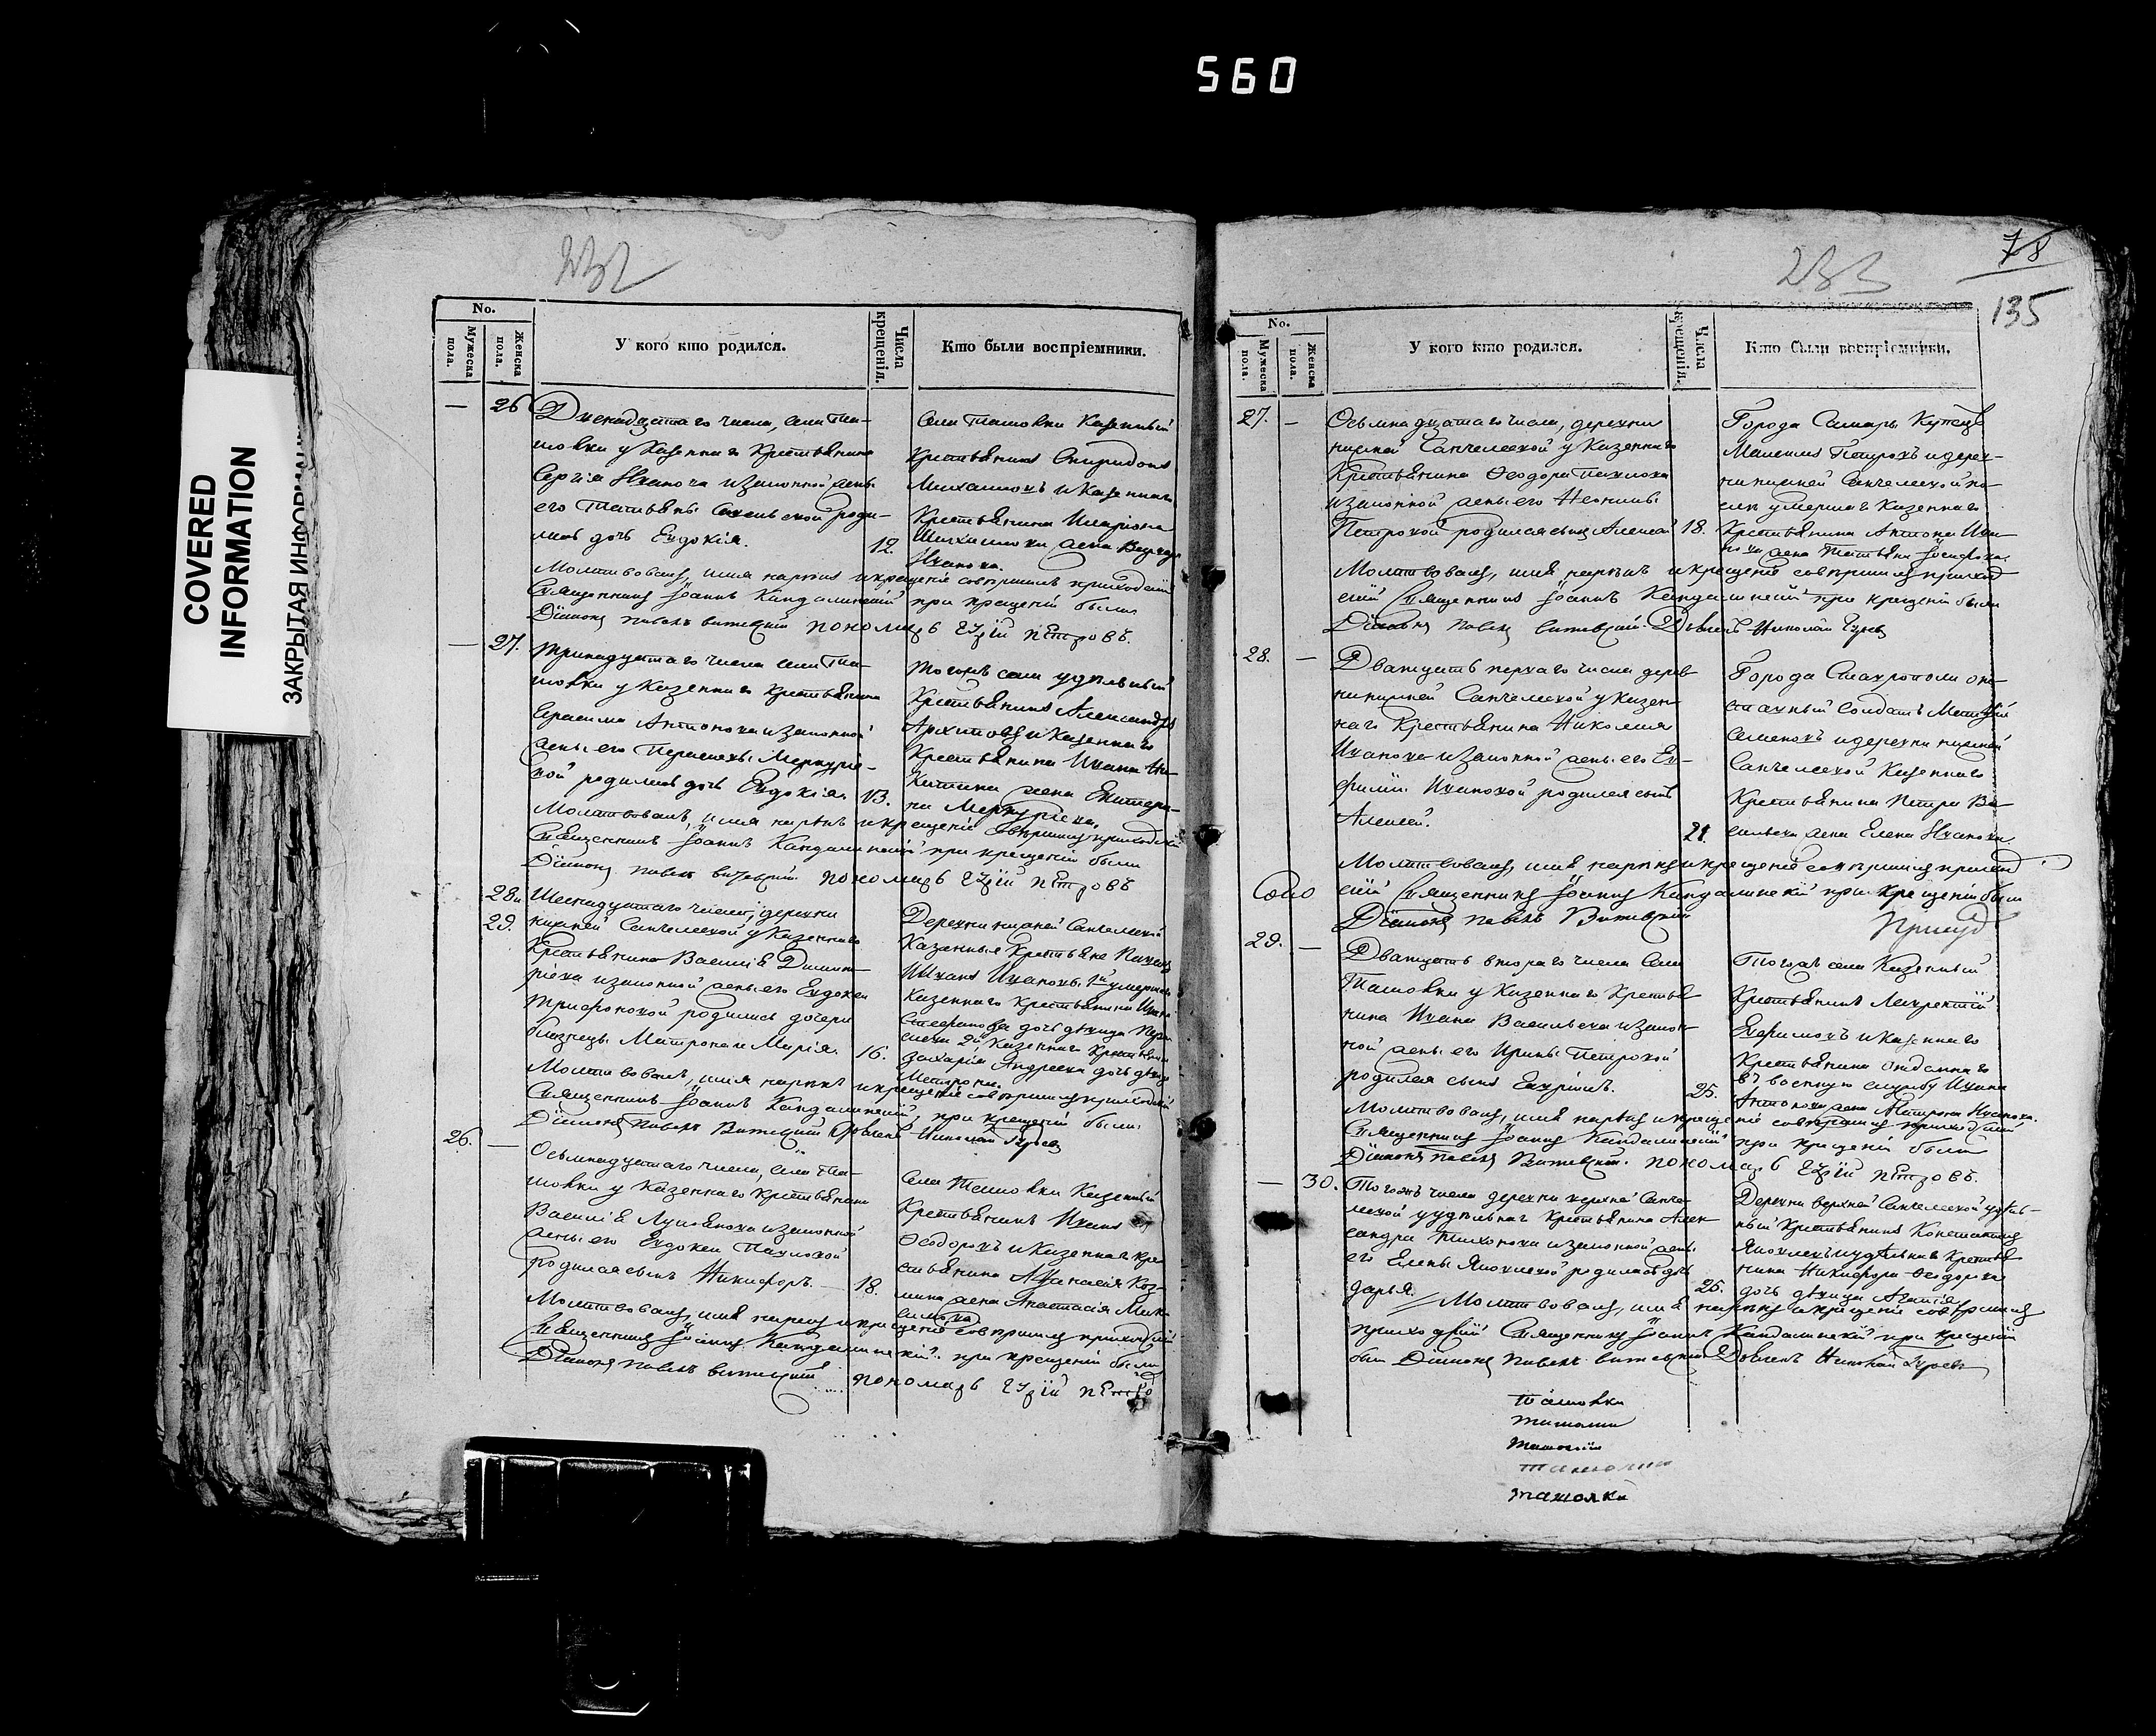 560
COVERED
INFORMATION
ЗАКРЫТАЯ
232
No.
Мужеска пола.
Женска пола.
У кого кто родился.
Числа крещенія.
Кто были воспріемники.
— 26
Двенадцатаго числа, села Та-
шовки у Казеннаго Крестьянина
Сергія Иванова изаконной жены
его Татьяны родила-
лась дочь Евдокія.
12.
Села Ташовки Казенный
Крестьянинъ Спиридонъ
Михаиловъ и Казеннаго
Крестьянина Иларіона
Михаилова жена
Иванова.
Молитвовалъ, имя нарекъ и крещеніе совершилъ приходскій
Священникъ Іоаннъ Кандалинскій при крещеніи были
Діаконъ Павелъ Витевскій пономарь Гурій Петровъ.
— 27.
Тринадцатаго числа села Та-
шовки у Казеннаго Крестьянина
Герасима Антонова изаконной
жены его Меркурie-
вой родилась дочь Евдокія.
13.
Тогожъ села удѣльный
Крестьянинъ Александръ
Архиповъ и Казеннаго
Крестьянина Ивана Ни-
китина жена Екатери-
на Меркуріева.
Молитвовалъ, имя нарекъ и крещеніе совершилъ приходскій
Священникъ Іоаннъ Кандалинскій при крещеніи были
Діаконъ Павелъ Витевскій пономарь Гурій Петровъ
28 и
29.
Шеснадцатаго числа, деревни
нижней Санчелеевой у Казеннаго
Крестьянина Василія Димит-
ріева изаконной жены его Евдокеи
Трифоновой родились дочери
близнецы Матрона и Марія.
16.
Деревни нижней Санчелеевой
Казенныя Крестьяне
Иванъ Ивановы, 1й умершаго
Казеннаго Крестьянина Ивана
Стефанова дочь дѣвица
2й Казеннаго Крестьянина
Захарія Андреева дочь дѣвица
Матрона.
Молитвовалъ, имя нарекъ и крещеніе совершилъ приходскій
Священникъ Іоаннъ Кандалинскій, при крещеніи были
Діаконъ Павелъ Витевскій Дьячекъ Николай Гурьевъ
26. —
Осьмнадцатаго числа, села Та-
шовки у Казеннаго Крестьянина
Василія Лукьянова изаконной
жены его Евдокеи Павловой
родился сынъ Никифоръ.
18.
Села Ташовки Казенный
Крестьянинъ Иванъ
Ѳеодоровъ и Казеннаго Кре-
стьянина Аѳанасія Коз-
мина жена Анастасія Мак-
симова
Молитвовалъ, имя нарекъ и крещеніе совершилъ приходскій
Священникъ Іоаннъ Кандалинскій. при крещеніи были
Діаконъ Павелъ Витевскій пономарь Гурій Петро
въ
233
78
135
No.
Мужеска пола.
Женска пола.
У кого кто родился.
Числа крещенія.
Кто были воспріемники.
27. —
Осьмнадцатаго числа, деревни
нижней Санчелеевой у Казеннаго
Крестьянина Ѳеодора Павлова
изаконной жены его Неонилы
Петровой родился сынъ Алексей
18.
Города Самары Купецъ
Петровъ и дерев-
ни нижней Санчелеевой по-
слѣ умершаго Казеннаго
Крестьянина Антона Ива-
нова жена Татьяна Іосифова.
Молитвовалъ, имя нарекъ и крещеніе совершилъ приход
скій Священникъ Іоаннъ Кандалинскій при крещеніи были
Діаконъ Павелъ Витевскій. Дьячекъ Николай Гурьевъ
28. —
Дватцать перваго числа дерев
ни нижней Санчелеевой у Казен-
наго Крестьянина Николая
Иванова изаконной жены его Ев-
фиміи Ивановой родился сынъ
Алексей.
21.
Города Ставрополя
солдатъ Матвѣй
Семеновъ и деревни нижней
Санчелеевой Казеннаго
Крестьянина Петра Ва-
сильева жена Елена Иванова.
Молитвовалъ, имя нарекъ и крещеніе совершилъ приход
скій Священникъ Іоаннъ Кандалинскій при крещеніи былъ
Діаконъ Павелъ Витевскій
29. —
Дватцать втораго числа села
Ташовки у Казеннаго Крестья
нина Ивана Васильева изакон-
ной жены его Ирины Петровой
родился сынъ
25.
Тогожъ села Казенный
Крестьянинъ Лаврентій
Евфимовъ и Казеннаго
Крестьянина отданнаго
въ военную службу Ивана
Антонова жена Матрона Иванова.
Молитвовалъ, имя нарекъ и крещеніе совершилъ приходскій
Священникъ Іоаннъ Кандалинскій при крещеніи были
Діаконъ Павелъ Витевскій. пономарь Гурій Петровъ.
— 30.
Тогожъ числа деревни верхней Санче-
леевой у удѣльнаго Крестьянина Алек-
сандра Тихонова изаконной жены
его Елены Яковлевой родилась дочь
Дарья.
25.
Деревни верхней Санчелеевой удѣль-
ный Крестьянинъ Константинъ
Яковлевъ и удѣльнаго Крестья
нина Никифора Ѳеодорова
дочь дѣвица
Молитвовалъ, имя нарекъ и крещеніе совершилъ
приходскій Священникъ Іоаннъ Кандалинскій при крещеніи
были Діаконъ Павелъ Витевскій Дьячекъ Николай Гурьевъ
Ташовки